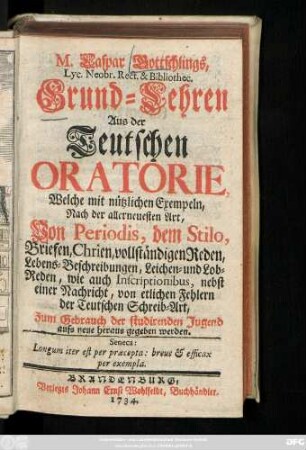 M. Caspar Gottschlings,
Lyc. Neobr. Rect. & Bibliothec.
Grund-Lehren
Aus der
Teutschen
ORATORIE,
Welche mit nützlichen Exempeln,
Nach der allerneuesten Art,
Von Periodis, dem Stilo,
Briefen, Chrien, vollständigen Reden,
Lebens-Beschreibungen, Leichen- und Lob-
Reden, wie auch Inscriptionibus, nebst
einer Nachricht, von etlichen Fehlern
der Teutschen Schreib-Art,
Zum Gebrauch der studirenden Jugend
aufs neue heraus gegeben worden.
Seneca:
Longum iter est per præcepta: breve & efficax
per exempla.
BRANDENBURG,
Verlegts Johann Ernst Wohlfeldt, Buchhändler.
1734.